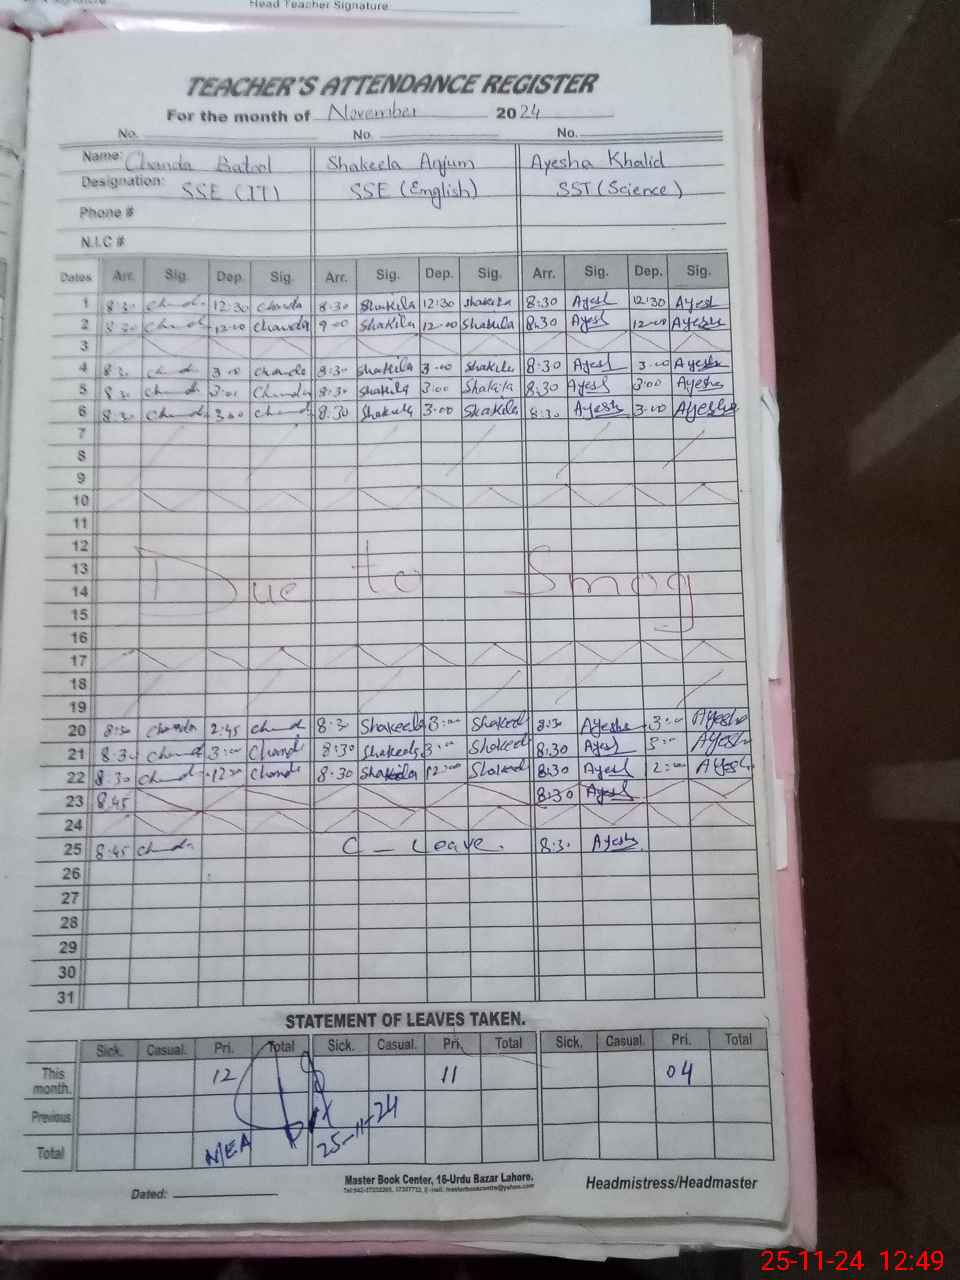 Head Teacher Signature
TEACHER'S ATTENDANCE REGISTER
For the month of November 2024
No. No. No.
Name: Chanda Batool Shakeela Anjum Ayesha Khalid
Designation: SSE (IT) SSE (English) SST (Science)
Phone #
N.I.C #
Dates Arr. Sig. Dep. Sig. Arr. Sig. Dep. Sig. Arr. Sig. Dep. Sig.
1 8:30 Chand 12:30 Chanda 8:30 Shakila 12:30 Shakila 8:30 Ayesh 12:30 Ayesh
2 8:30 Chand 12:00 Chanda 9:00 Shakila 12:00 Shakila 8:30 Ayesh 12:00 Ayesha
3
4 8:3 3:00 Chanda 8:30 Shakila 3:00 Shakila 8:30 Ayesh 3:00 Ayesha
5 8:30 Chand Chanda 8:30 Shakila 3:00 Shakila 8:30 Ayesh 3:00 Ayesha
6 8:30 Chand 3:00 Chand 8:30 Shakeela 3:00 Shakila 8:30 Ayesh 3:00 Ayesha
7
8
9
10
11
12
13 Due to Smog
14
15
16
17
18
19
20 8:30 Chanda 2:45 Chand 8:30 Shakeela 3:00 Shakeel 8:30 Ayesha 3:00 Ayesha
21 8:30 Chand 3:00 Chand 8:30 Shakeela 3:00 Shakeel 8:30 Ayesh 3:00 Ayesh
22 8:30 Chand 12:00 Chand 8:30 Shakeela 12:00 Shakeel 8:30 Ayesh 2:00 Ayesh
23 8:45 8:30 Ayesh
24
25 8:45 Chand C - Leave. 8:30 Ayesh
26
27
28
29
30
31
STATEMENT OF LEAVES TAKEN.
Sick. Casual. Pri. Total Sick. Casual. Pri. Total Sick. Casual. Pri. Total
This month. 12 11 04
Previous
Total MEA 25-11-24
Dated:
Master Book Center, 16-Urdu Bazar Lahore.
Headmistress/Headmaster
25-11-24 12:49